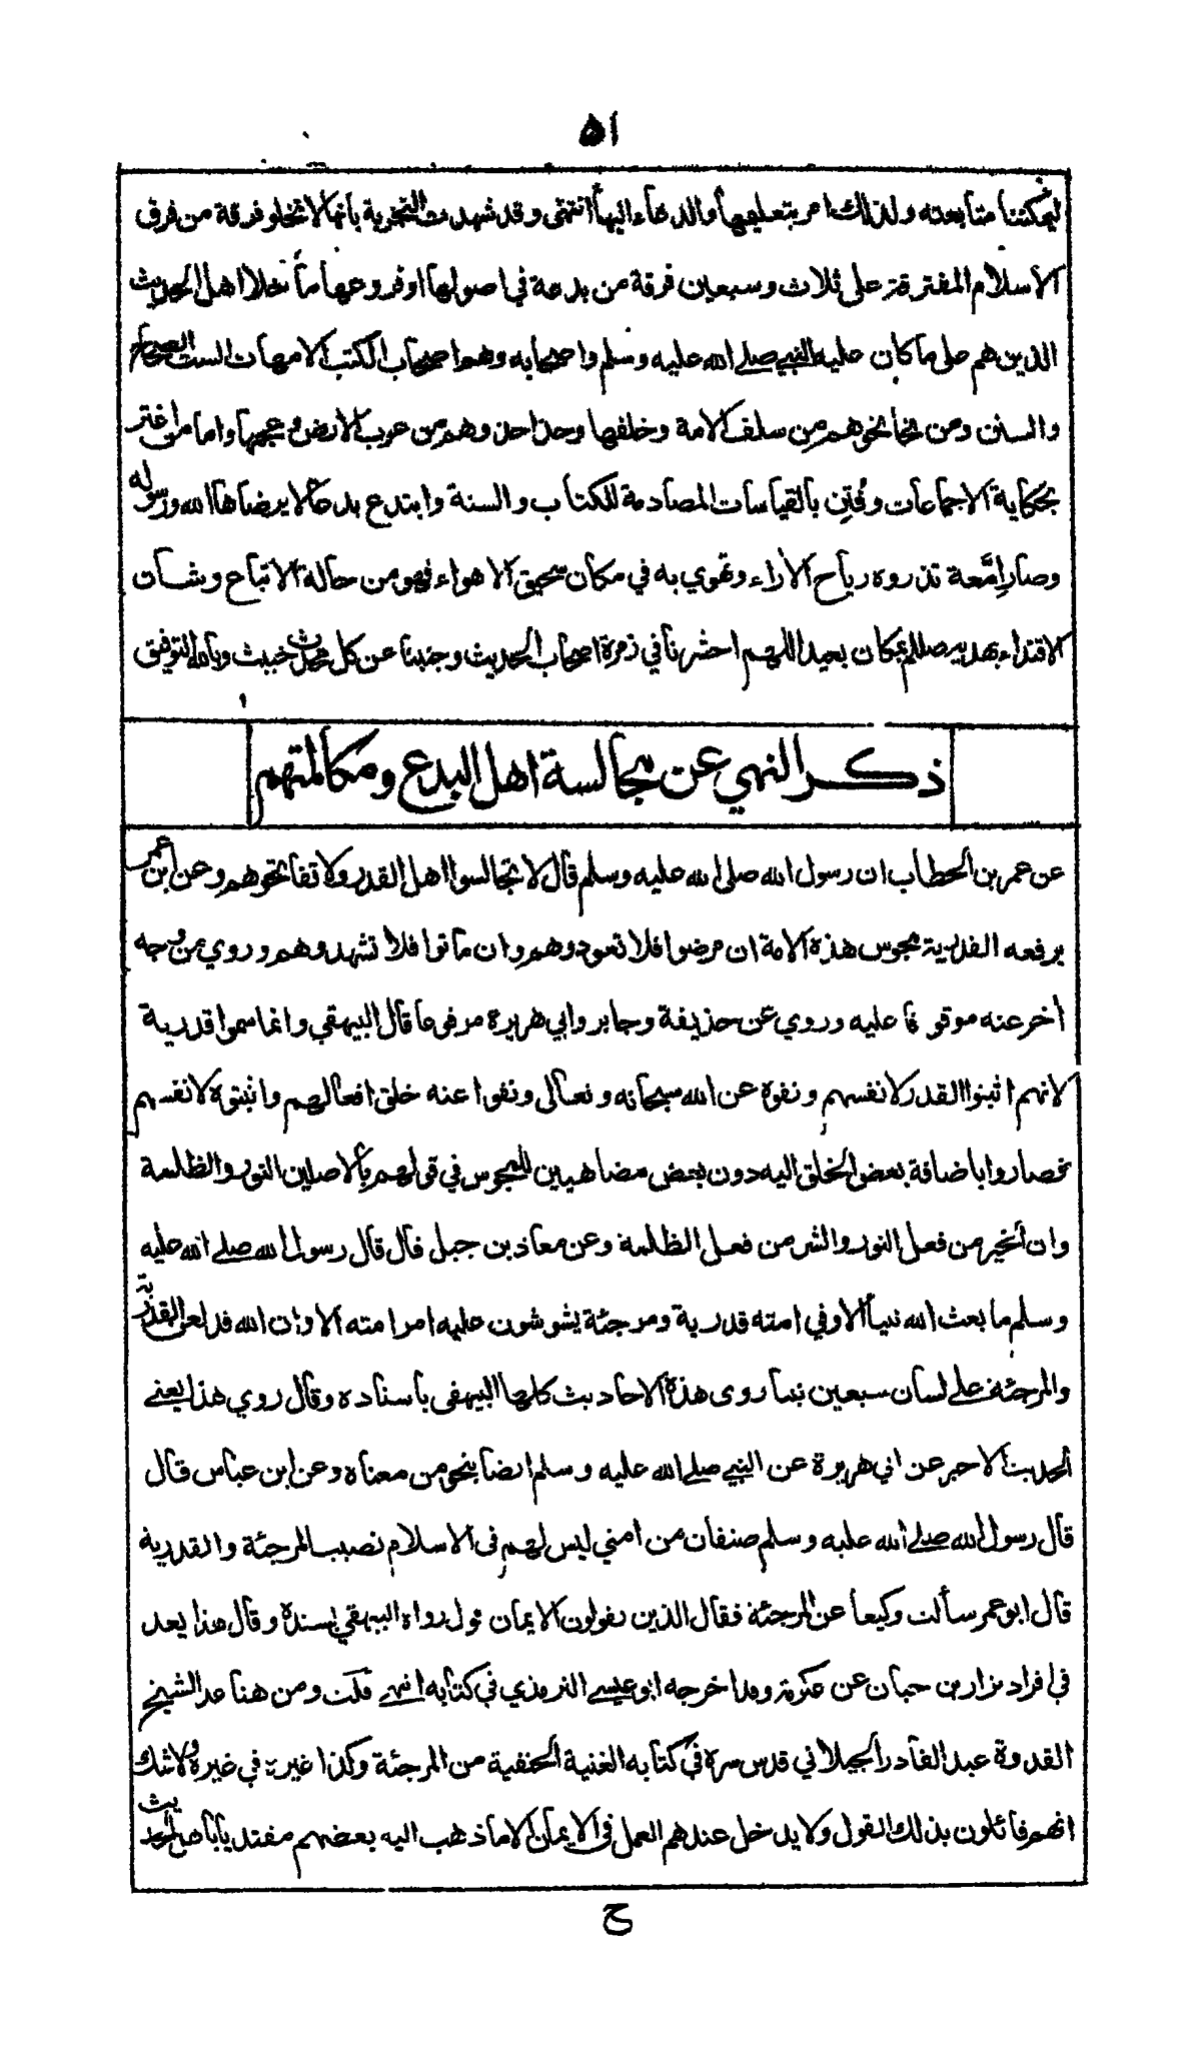 ٥١
ليمكننا متابعته ولذلك امر بتعليمها والدعاء اليها انتهى وقد شهدت التجربة بانها لا تخلو فرقة من فرق
الاسلام المفترقة على ثلاث وسبعين فرقة من بدعة في اصولها او فروعها ما خلا اهل الحديث
الذين هم على ما كان عليه النبي صلى الله عليه وسلم واصحابه وهم اصحاب الكتب الامهات الست الصحاح
والسنن ومن نحا نحوهم من سلف الامة وخلفها وحدا حد وهم من عرب الارض وعجمها واما من اغتر
بحكاية الاجماعات وفتن بالقياسات المصادمة للكتاب والسنة وابتدع بدعا لا يرضاها الله ورسوله
وصار إمّعة تذروه رياح الاراء وتهوي به في مكان سحيق الاهواء فهو من حالة الاتباع وشان
الاقتداء بهديه صللم بمكان بعيد اللهم احشرنا في زمرة اصحاب الحديث وجنبنا عن كل محدث خبيث وبالله التوفيق
ذكر النهي عن مجالسة اهل البدع ومكالمتهم
عن عمر بن الخطاب ان رسول الله صلى الله عليه وسلم قال لا تجالسوا اهل القدر ولا تفاتحوهم وعن ابن عمر
يرفعه القدرية مجوس هذه الامة ان مرضوا فلا تعودوهم وان ماتوا فلا تشهدوهم وروي من وجه
اخر عنه موقوفا عليه وروي عن حذيفة وجابر وابي هريرة مرفوعا قال البيهقي وانما سموا قدرية
لانهم اثبتوا القدر لانفسهم ونفوه عن الله سبحانه وتعالى ونفوا عنه خلق افعالهم واثبتوه لانفسهم
فصاروا باضافة بعض الخلق اليه دون بعض مضاهيين للمجوس في قولهم بالاصلين النور والظلمة
وان الخير من فعل النور والشر من فعل الظلمة وعن معاذ بن جبل قال قال رسول الله صلى الله عليه
وسلم ما بعث الله نبيا الا وفي امته قدرية ومرجئة يشوشون عليه امر امته الا وان الله قد لعن القدرية
والمرجئة على لسان سبعين نبيا روى هذه الاحاديث كلها البيهقي باسناده وقال روي هذا يعني
الحديث الاخير عن ابي هريرة عن النبي صلى الله عليه وسلم ايضا بنحو من معناه وعن ابن عباس قال
قال رسول الله صلى الله عليه وسلم صنفان من امتي ليس لهم في الاسلام نصيب المرجئة والقدرية
قال ابو عمر سألت وكيعا عن المرجئة فقال الذين يقولون الايمان قول رواه البيهقي بسنده وقال هذا يعد
في افراد نزار بن حبان عن عكرمة وقد اخرجه ابو عيسى الترمذي في كتابه انتهى قلت ومن هنا عد الشيخ
القدوة عبد القادر الجيلاني قدس سره في كتابه الغنية الحنفية من المرجئة وكذا غيره في غيره ولا شك
انهم قائلون بذلك القول ولا يدخل عندهم العمل في الايمان الا ما ذهب اليه بعضهم مقتديا باصحاب الحديث
ح